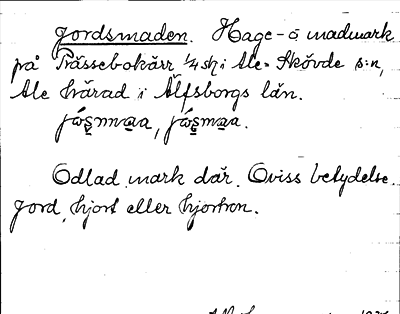 Jordsmaden. Hage- o madmark
på Prässebokärr 1/4 sk i Ale-Skövde s:n,
Ale härad i Älfsborgs län.
Odlad mark där. Oviss betydelse.
Jord, hjort eller hjortron.